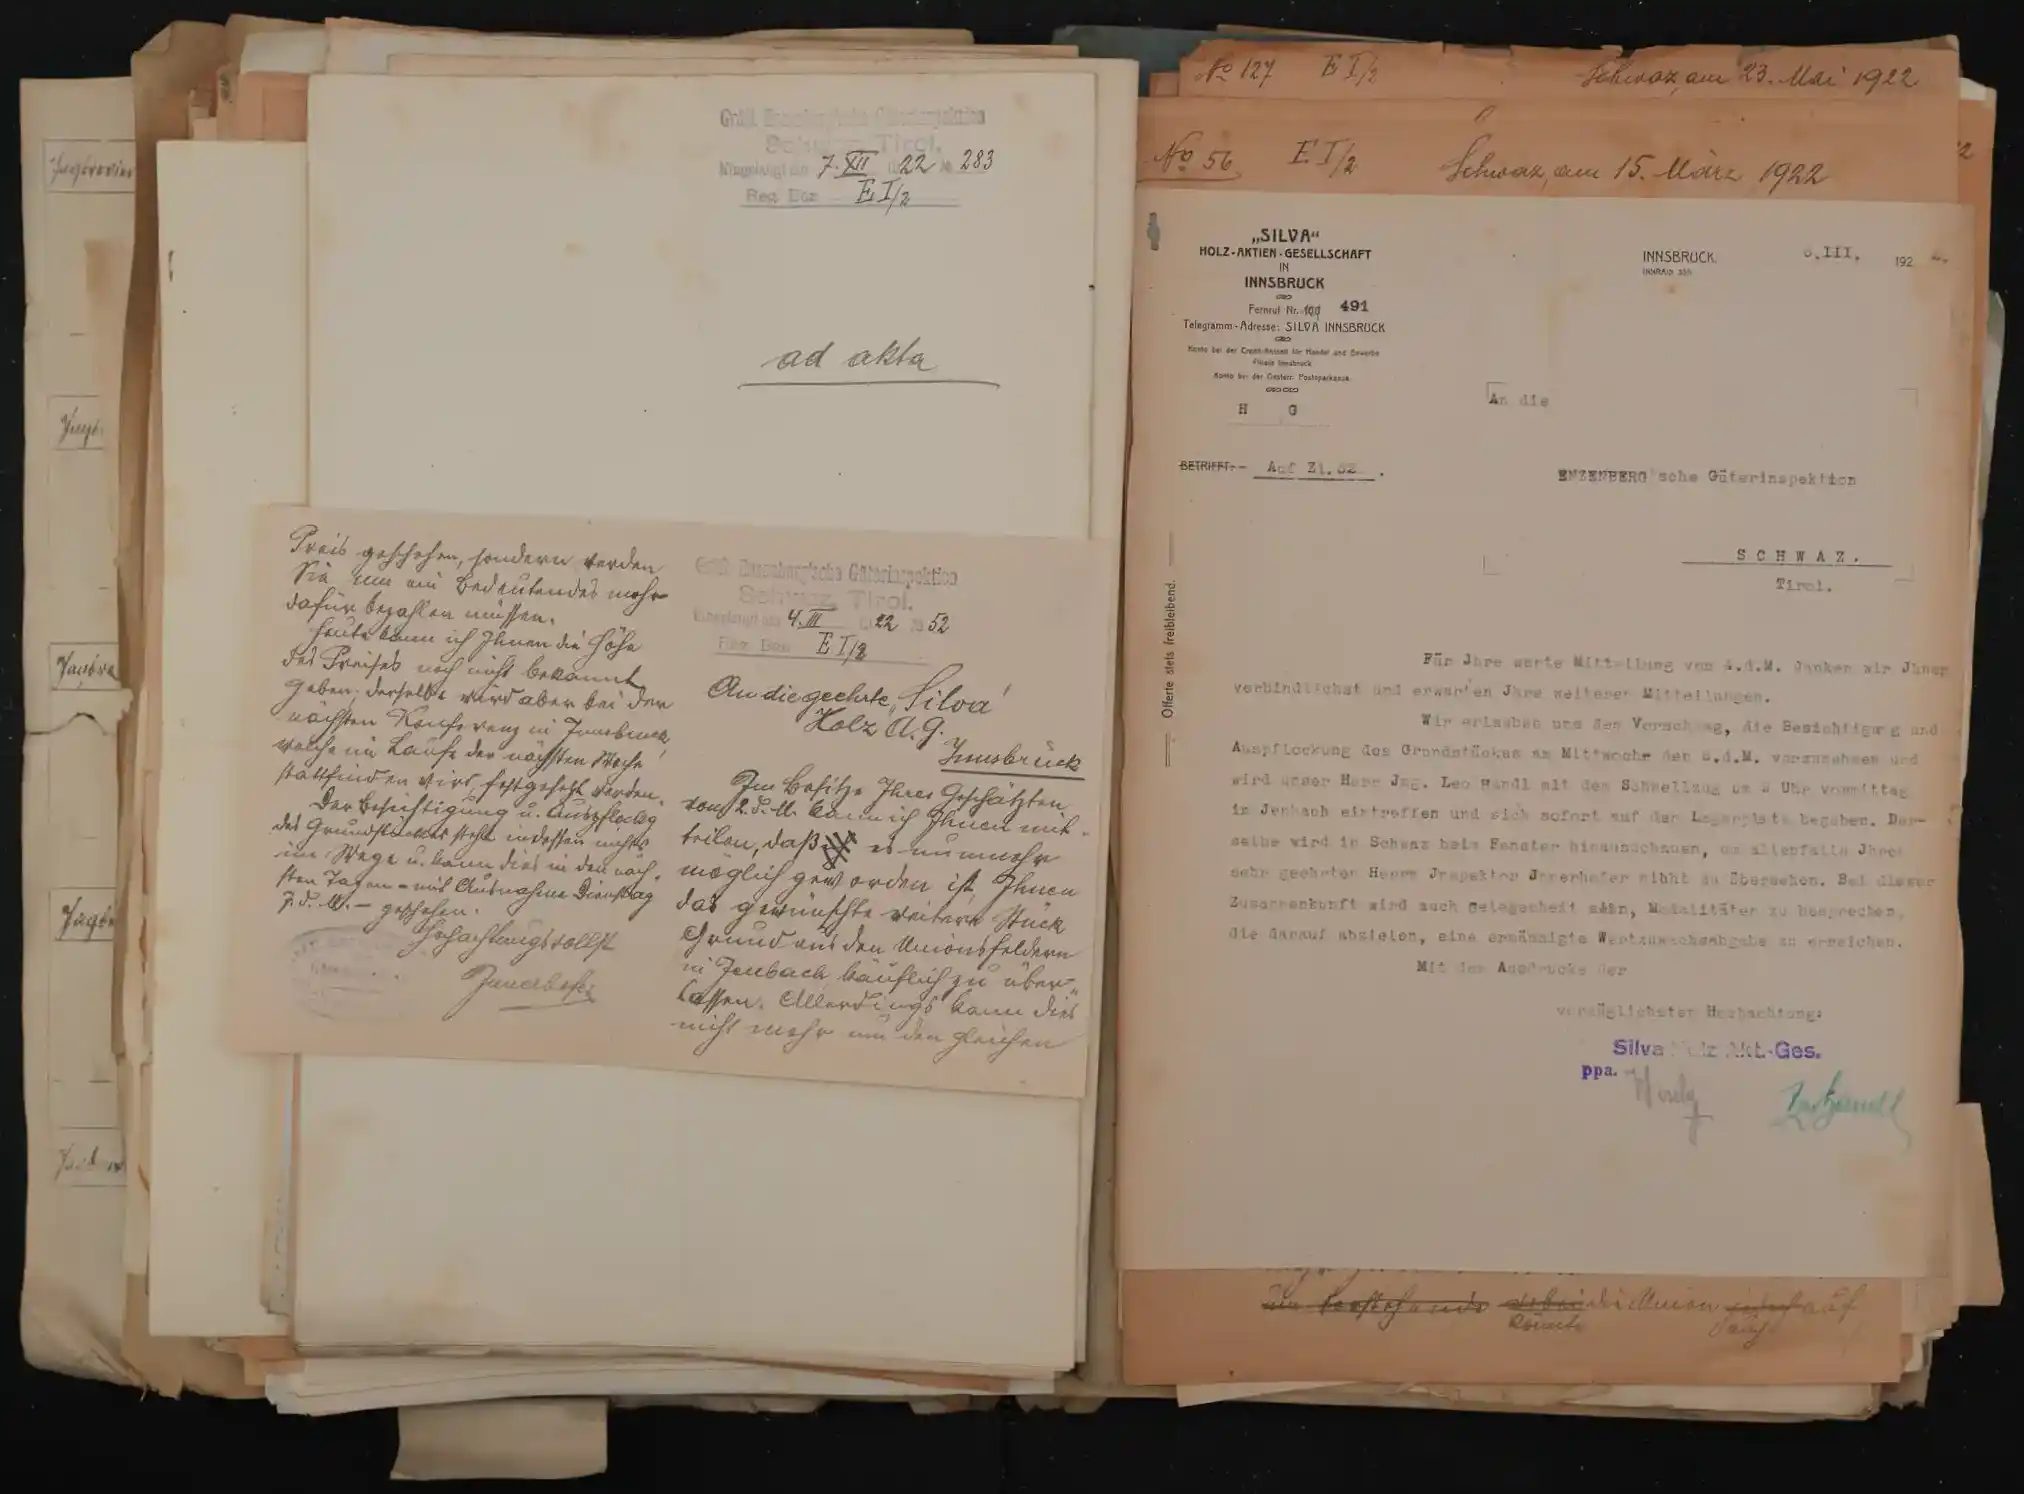 Gräfl. Enzenberg'sche Güterinspektion
Schwaz, Tirol.
Eingelangt am 7. XII 1922 № 283
Reg. Bez. E I/2
ad akta
Gräfl. Enzenberg'sche Güterinspektion
Schwaz, Tirol.
Eingelangt am 4. III 1922 № 52
Reg. Bez. E I/2
An die geehrte „Silva"
Holz A.G.
Innsbruck
Im Besitze Ihres Geschätzten
vom 2. d. M. kann ich Ihnen mit-
teilen, daß es nunmehr
möglich geworden ist, Ihnen
das gewünschte weitere Stück
Grund aus den Unionsfeldern
in Jenbach käuflich zu über-
lassen. Allerdings kann dies
nicht mehr um den gleichen
Preis geschehen, sondern werden
Sie um ein Bedeutendes mehr
dafür bezahlen müssen.
Heute kann ich Ihnen die Höhe
des Preises noch nicht bekannt
geben; derselbe wird aber bei der
nächsten Konferenz in Innsbruck,
welche im Laufe der nächsten Woche
stattfinden wird, festgesetzt werden.
Der Besichtigung u. Auspflockg
des Grundstückes steht indessen nichts
im Wege u. kann dies in den näch-
sten Tagen – mit Ausnahme Dienstag
7. d. M. – geschehen.
Hochachtungsvollst
Innerhofer
№ 127 E I/2 Schwaz, am 23. Mai 1922
№ 56 E I/2 Schwaz, am 15. März 1922
„SILVA"
HOLZ-AKTIEN-GESELLSCHAFT
IN
INNSBRUCK
Fernruf Nr. 491
Telegramm-Adresse: SILVA INNSBRUCK
Konto bei der Credit-Anstalt für Handel und Gewerbe
Filiale Innsbruck
Konto bei der Oesterr. Postsparkasse
H G
INNSBRUCK, III. 192
INNRAIN
BETRIFFT:- Auf Zl. 52 .
An die
ENZENBERG'sche Güterinspektion
S C H W A Z .
Tirol.
Offerte stets freibleibend.
Für Jhre werte Mitteilung vom 4.d.M. danken wir Jhnen
verbindlichst und erwarten Jhre weiteren Mitteilungen.
Wir erlauben uns den Vorschlag, die Besichtigung und
Auspflockung des Grundstückes am Mittwoch den 8.d.M. vorzunehmen und
wird unser Herr Jng. Leo Handl mit dem Schnellzug um Uhr vormittag
in Jenbach eintreffen und sich sofort auf den Lagerplatz begeben. Der-
selbe wird in Schwaz beim Fenster hinausschauen, um allenfalls Jhren
sehr geehrten Herrn Jnspektor Jnnerhofer nihht zu übersehen. Bei dieser
Zusammenkunft wird auch Gelegenheit sein, Modalitäten zu besprechen,
die darauf abzielen, eine ermässigte Wertzuwachsabgabe zu erreichen.
Mit dem Ausdrucke der
vorzüglichsten Hochachtung:
Silva Holz Akt.-Ges.
ppa.
Leo Handl
die Union auf
könnte